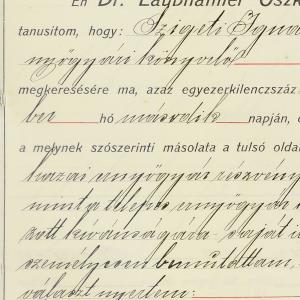 Én Dr. Laubhaimer Oszk
tanusítom, hogy: Szigeti Igná
nyögyári könyvelő
megkeresésére ma, azaz egyezerkilenczszáz
ber hó második napján, d
a melynek szószerinti másolata a tulsó olda
hazai ernyőgyár részvény
mint a telepes ernyőgyár
zott kivánságára saját
személyesen bemutattam,
választ nyertem: